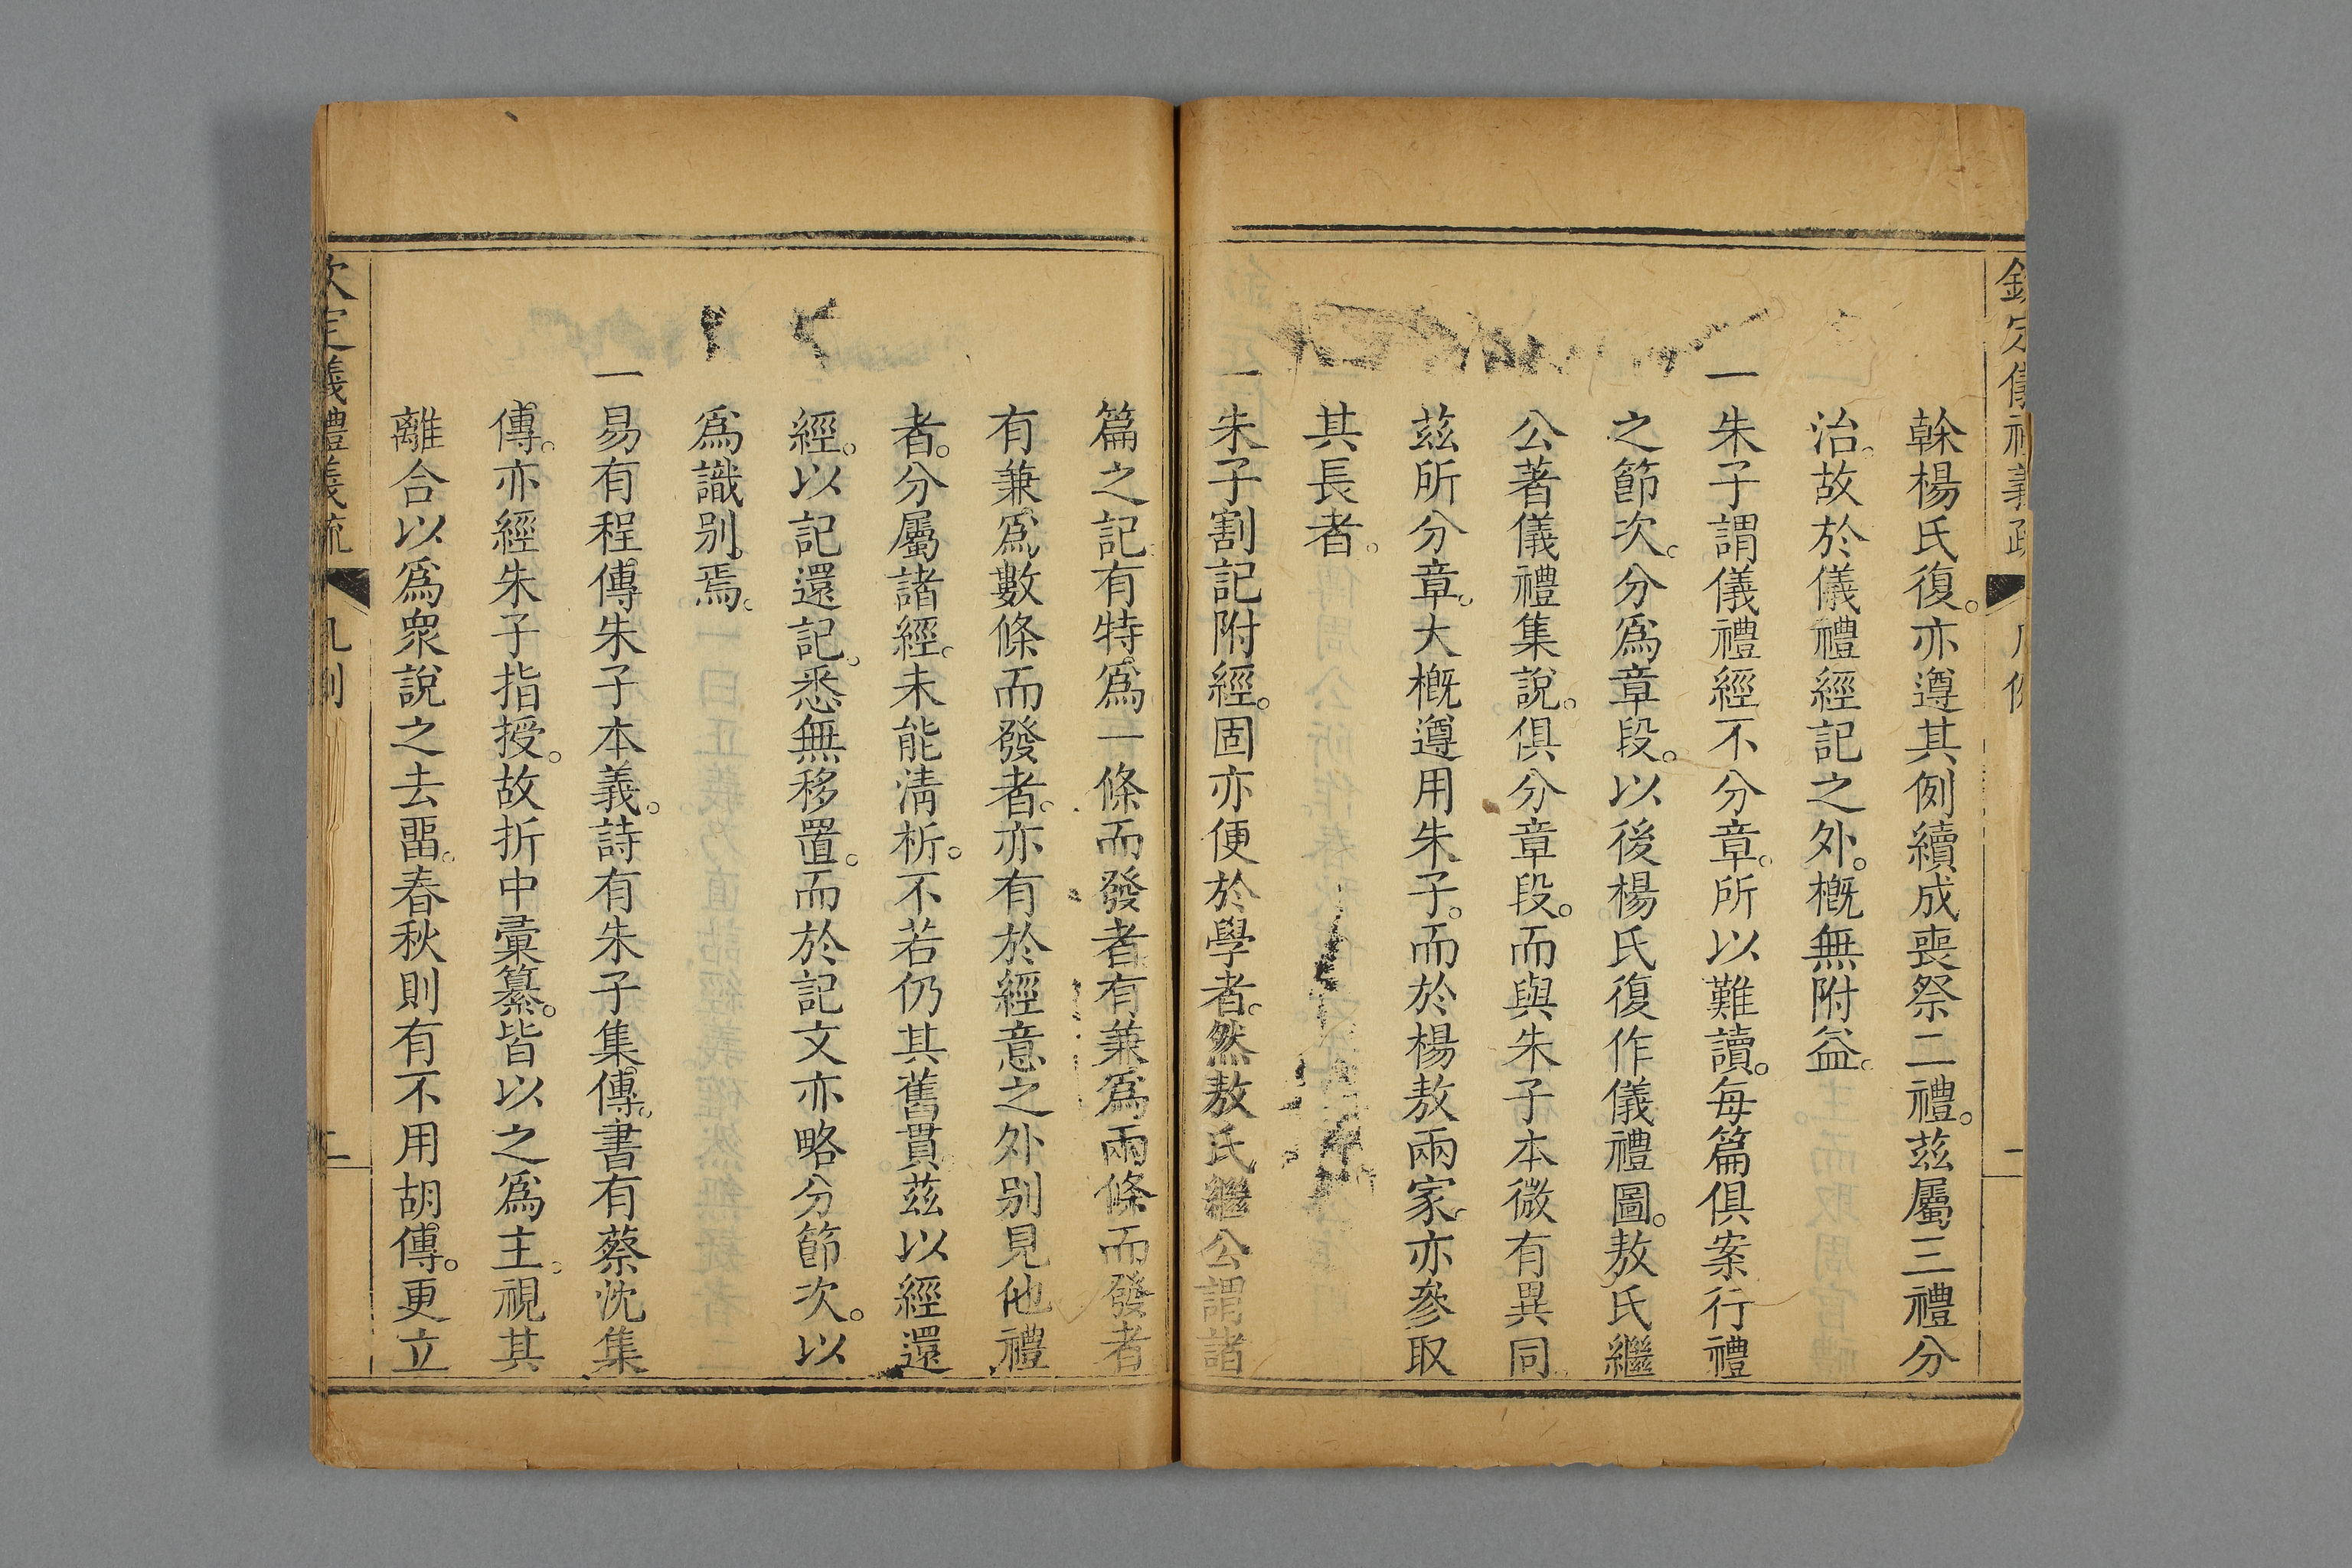 欽定儀禮義疏
凡例
二
榦楊氏復。亦遵其例續成喪祭二禮。茲屬三禮分
治。故於儀禮經記之外。槪無附益。
一朱子謂儀禮經不分章。所以難讀。每篇俱案行禮
之節次。分爲章段。以後楊氏復作儀禮圖。敖氏繼
公著儀禮集說。俱分章段。而與朱子本微有異同
茲所分章。大槪遵用朱子。而於楊敖兩家亦參取
其長者。
一朱子割記附經。固亦便於學者。然敖氏繼公謂諸
篇之記有特爲一條而發者有兼爲兩條而發者
有兼爲數條而發者。亦有於經意之外别見他禮
者。分屬諸經。未能淸析。不若仍其舊貫茲以經還
經。以記還記。悉無移置。而於記文亦略分節次。以
爲識别焉。
一易有程傳朱子本義。詩有朱子集傳。書有蔡沈集
傳。亦經朱子指授。故折中彙纂。皆以之爲主。視其
離合以爲衆說之去畱。春秋則有不用胡傳。更立
欽定儀禮義疏
凡例
二